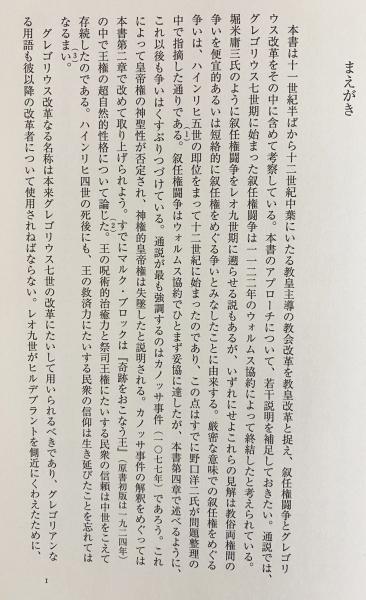 まえがき
本書は十一世紀半ばから十二世紀中葉にいたる教皇主導の教会改革を教皇改革と捉え、叙任権闘争とグレゴリ
ウス改革をその中に含めて考察している。本書のアプローチについて、若干説明を補足しておきたい。通説では、
グレゴリウス七世期に始まった叙任権闘争は一一二二年のウォルムス協約によって終結したと考えられている。
堀米庸三氏のように叙任権闘争をレオ九世期に遡らせる説もあるが、いずれにせよこれらの見解は教俗両権間の
争いを便宜的あるいは短絡的に叙任権をめぐる争いとみなしたことに由来する。厳密な意味での叙任権をめぐる
争いは、ハインリヒ五世の即位をまって十二世紀に始まったのであり、この点はすでに野口洋二氏が問題整理の
中で指摘した通りである。(1)叙任権闘争はウォルムス協約でひとまず妥協に達したが、本書第四章で述べるように、
これ以後も争いはくすぶりつづけている。通説が最も強調するのはカノッサ事件(一〇七七年)であろう。これ
によって皇帝権の神聖性が否定され、神権的皇帝権は失墜したと説明される。カノッサ事件の解釈をめぐっては
本書第二章で改めて取り上げられよう。すでにマルク・ブロックは『奇跡をおこなう王』(原書初版は一九二四年)
の中で王権の超自然的性格について論じた。(2)王の呪術的治癒力と祭司王権にたいする民衆の信頼は中世をこえて
存続したのである。ハインリヒ四世の死後にも、王の救済力にたいする民衆の信仰は生き延びたことを忘れては
なるまい。(3)
グレゴリウス改革なる名称は本来グレゴリウス七世の改革にたいして用いられるべきであり、グレゴリアンな
る用語も彼以降の改革者について使用されねばならない。レオ九世がヒルデブラントを側近にくわえたために、
1